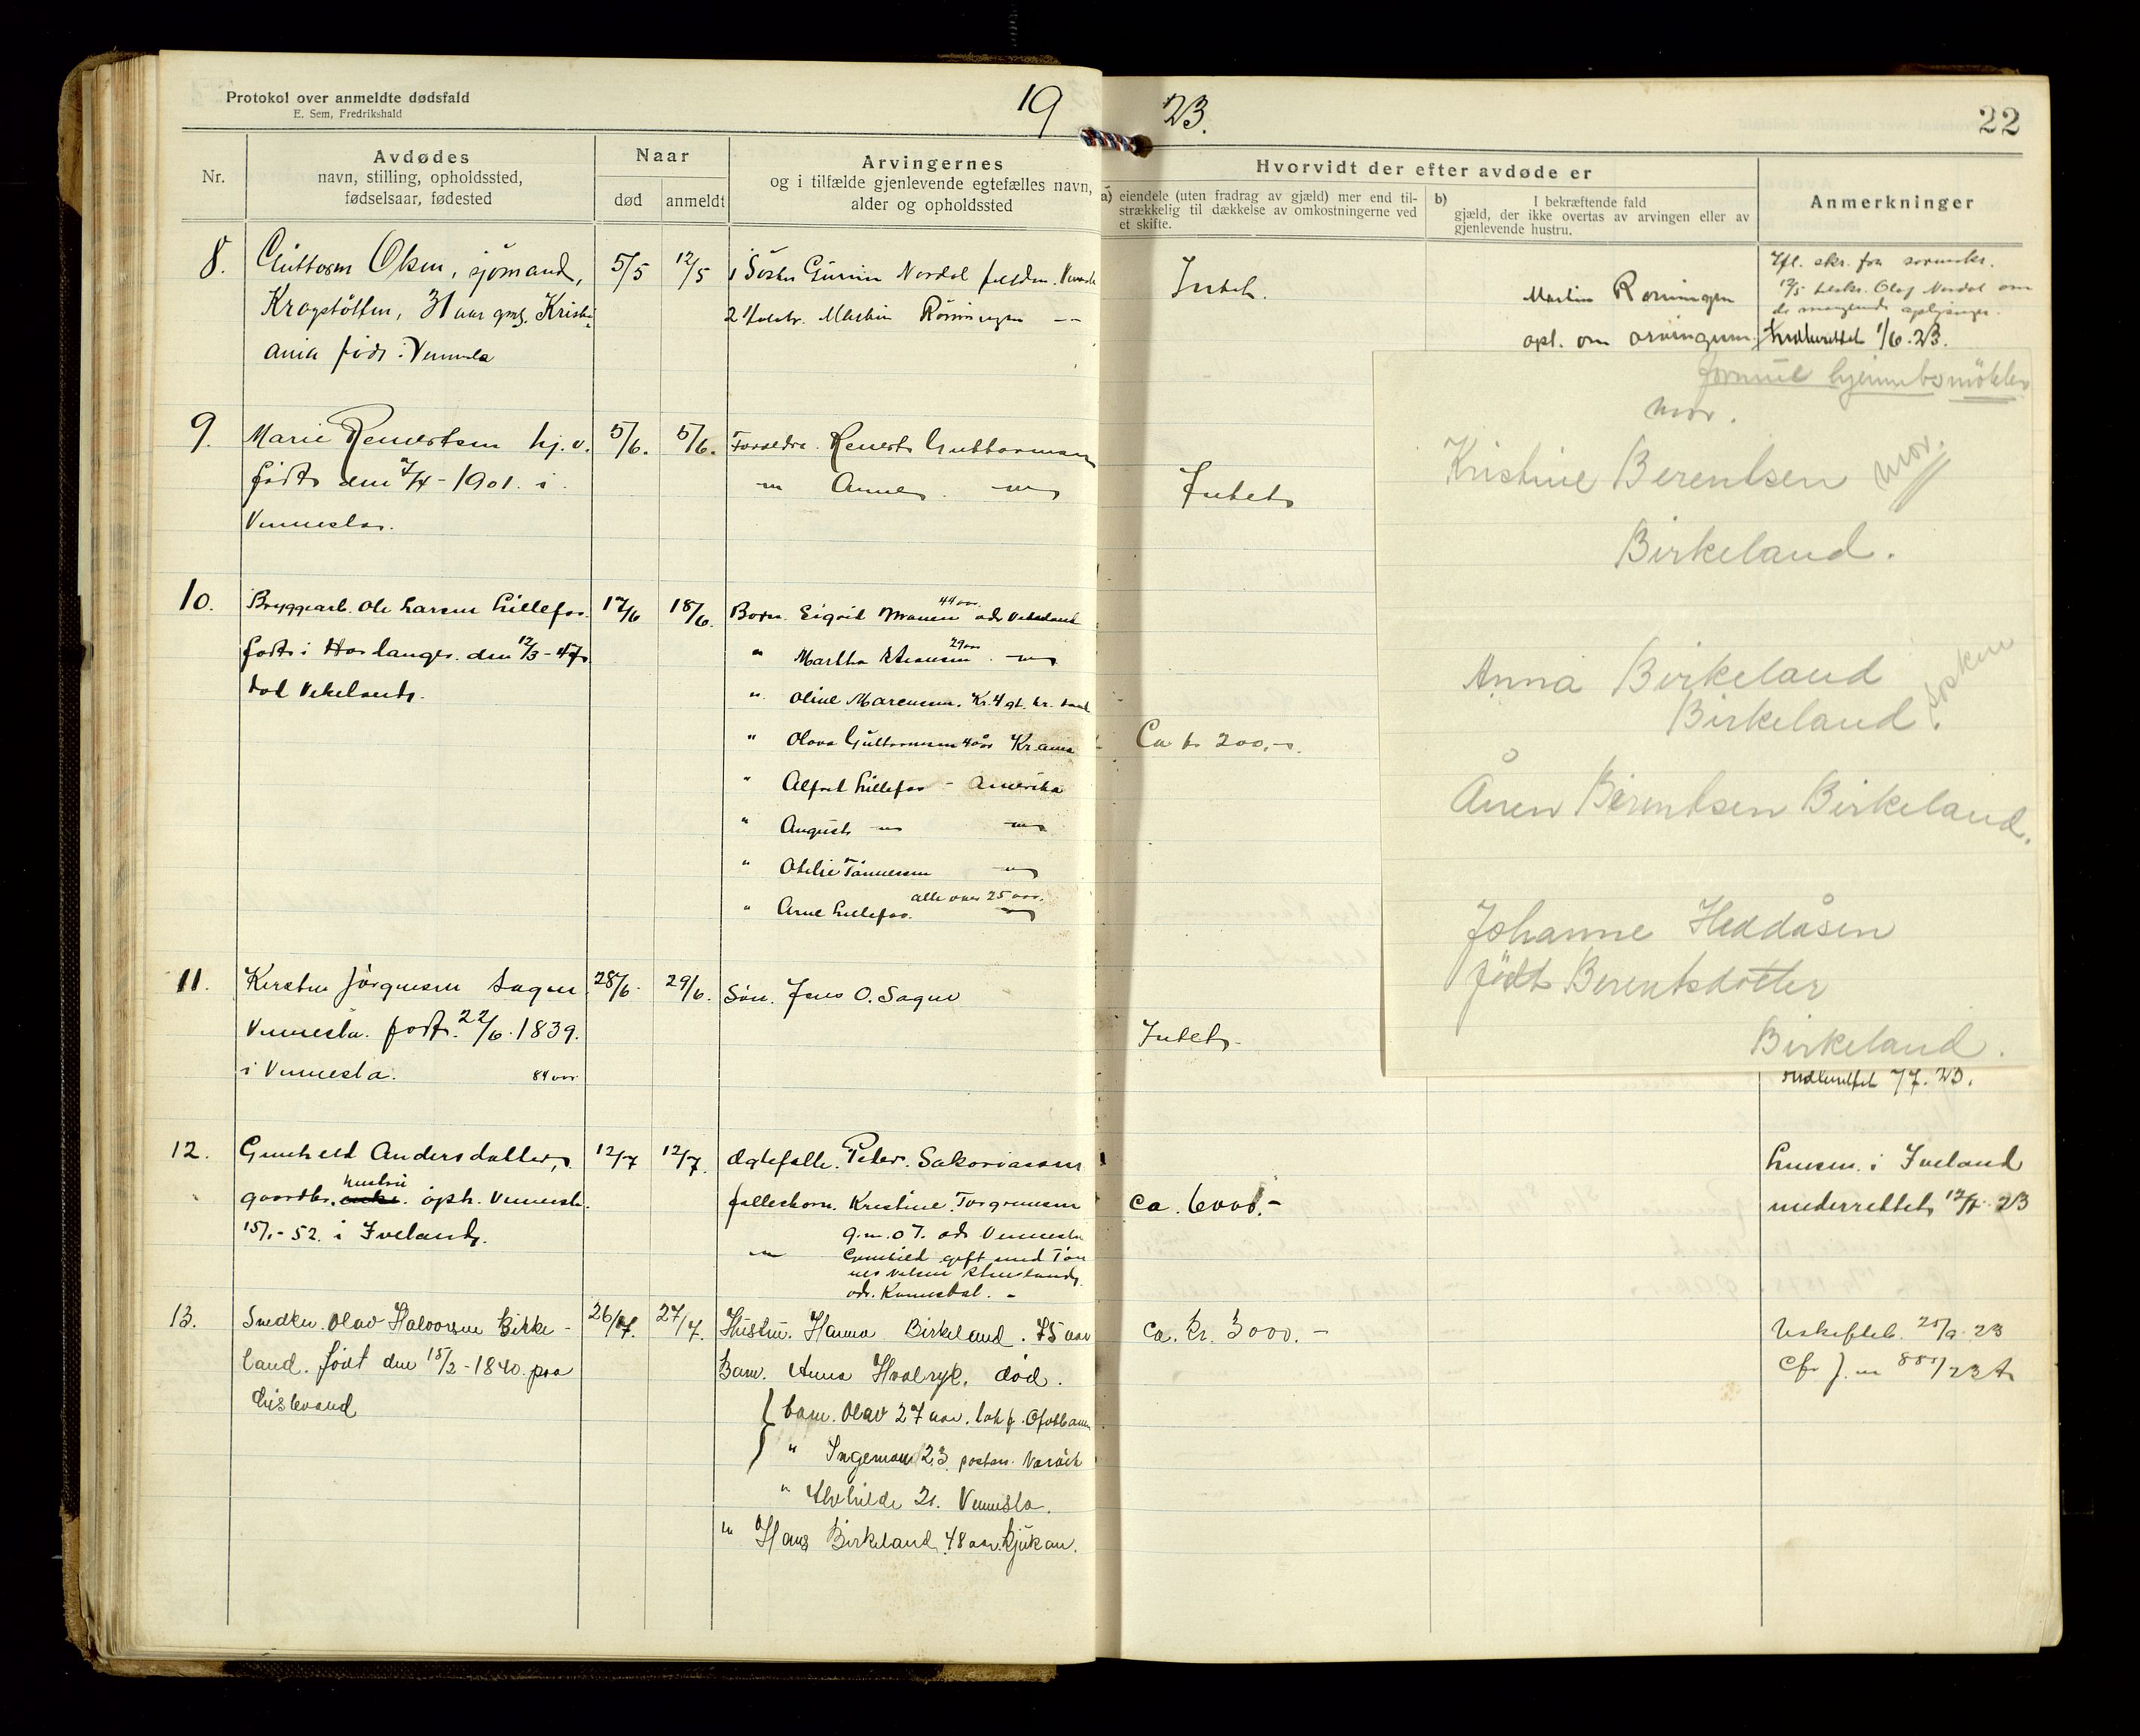 Protokol over anmeldte dødsfald
E. Sem, Fredrikshald
19 23.
22
Nr.
Avdødes
navn, stilling, opholdssted,
fødselsaar, fødested
Naar
død
anmeldt
Arvingernes
og i tilfælde gjenlevende egtefælles navn,
alder og opholdssted
Hvorvidt der efter avdøde er
a) eiendele (uten fradrag av gjæld) mer end til-
strækkelig til dækkelse av omkostningerne ved
et skifte.
b) I bekræftende fald
gjæld, der ikke overtas av arvingen eller av
gjenlevende hustru.
Anmerkninger
8.
Guttorm Olsen, sjømand,
Kragstøtten, 31 aar gml. Kristi-
ania født i Vennesla
5/5
12/5
1 Søster Gunni Nordal
2 Halvbr. Martin Rønningen
Intet.
Martin Rønningen
opl. om arvingerne.
12/5 Olaf Nordal om
de manglende oplysninger.
Indberettet 1/6. 23.
9.
Marie Renertsen hj. v.
født den 7/4 - 1901. i
Vennesla.
5/6.
5/6.
Foreldre. Renert Guttormsen
" Anne "
Intet
10.
Bryggearb. Ole Larsen Lillefos
født i den 12/3 - 47
død Vikeland.
17/6
18/6.
Børn. Sigrid 44 aar. adr Vikeland
" Martha 29 aar "
" Oline Marcussen. Kr. 4 gt. kr. sand
" Olava Guttormsen 40 år Kr.ania
" Alfred Lillefos - Amerika
" August " "
" Otelie Tønnessen "
" Arne Lillefos. alle over 25 aar. "
Ca kr 200,-
11.
Kirsten Jörgensen Sagen
Vennesla. født. 22/6. 1839.
i Vennesla. 84 aar
28/6.
29/6.
Søn. Jens O. Sagen
Intet.
Indberettet 7/7. 23.
12.
Gunhild Andersdatter,
gaardbr. hustru enke. oph. Vennesla.
15/1 - 52. i Iveland.
12/7
12/7.
Ægtefelle. Peder. Sakariassen
fellesbarn. Kristine. Torgrimsen
g. m. O T. adr Vennesla
" Gunhild gift med Tøn
nes
adr.
Ca. 6000.-
Lensm. i Iveland
underrettet 12/7. 23
13.
Snedker. Olav Halvorsen Birke-
land. født den 15/2 - 1840. paa
26/7.
27/7.
Hustru. Hanna Birkeland. 75 aar
Barn. Anna Hvalryk. død.
barn. Olav 27 aar. Ofotbanen
" Ingeman 23.
" 21. Vennesla.
" Hans Birkeland. 48 aar. Rjukan.
Ca. kr. 3000.-
25/9. 23
Cfr J. nr 885/23 A
formue hjemmebsmøkler
mor.
Kristine Berentsen mor.
Birkeland.
Anna Birkeland
Birkeland. søsken
Ånen Berentsen Birkeland.
Johanne Heddåsen
født Berentsdotter
Birkeland.